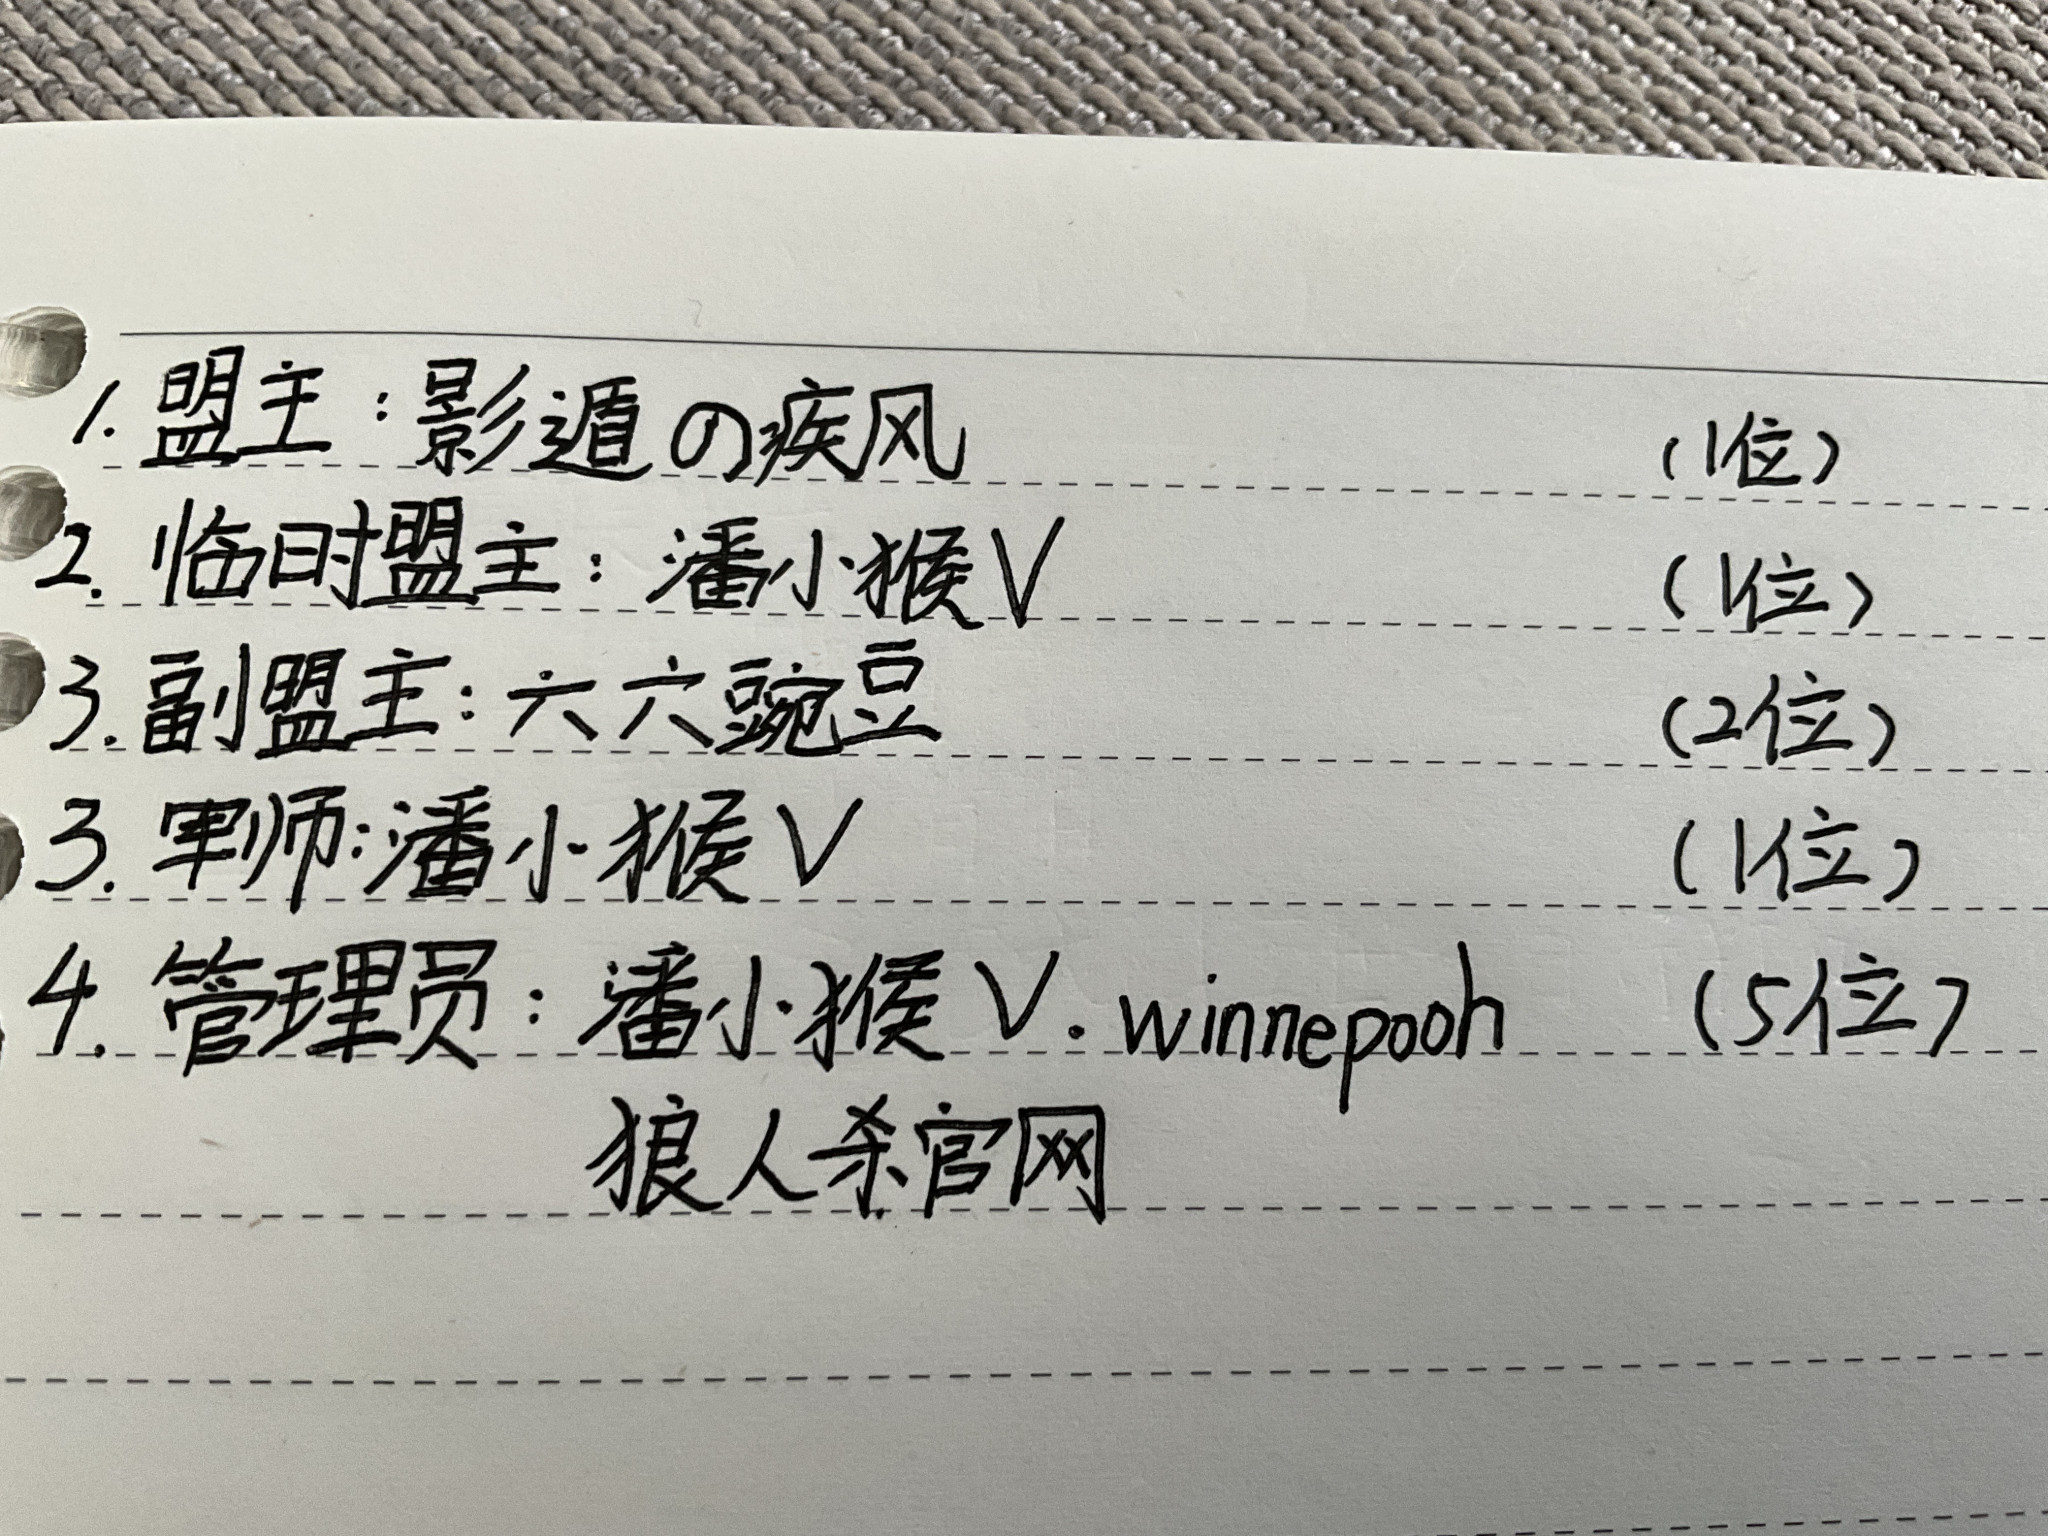 1. 盟主：影遁の疾风 (1位)
2. 临时盟主：潘小猴V (1位)
3. 副盟主：六六豌豆 (2位)
3. 军师：潘小猴V (1位)
4. 管理员：潘小猴V. winnepooh (5位)
狼人杀官网